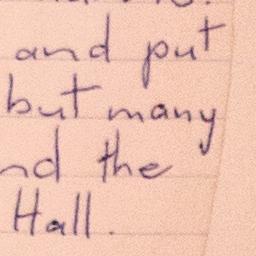 and put
but many
the
Hall.